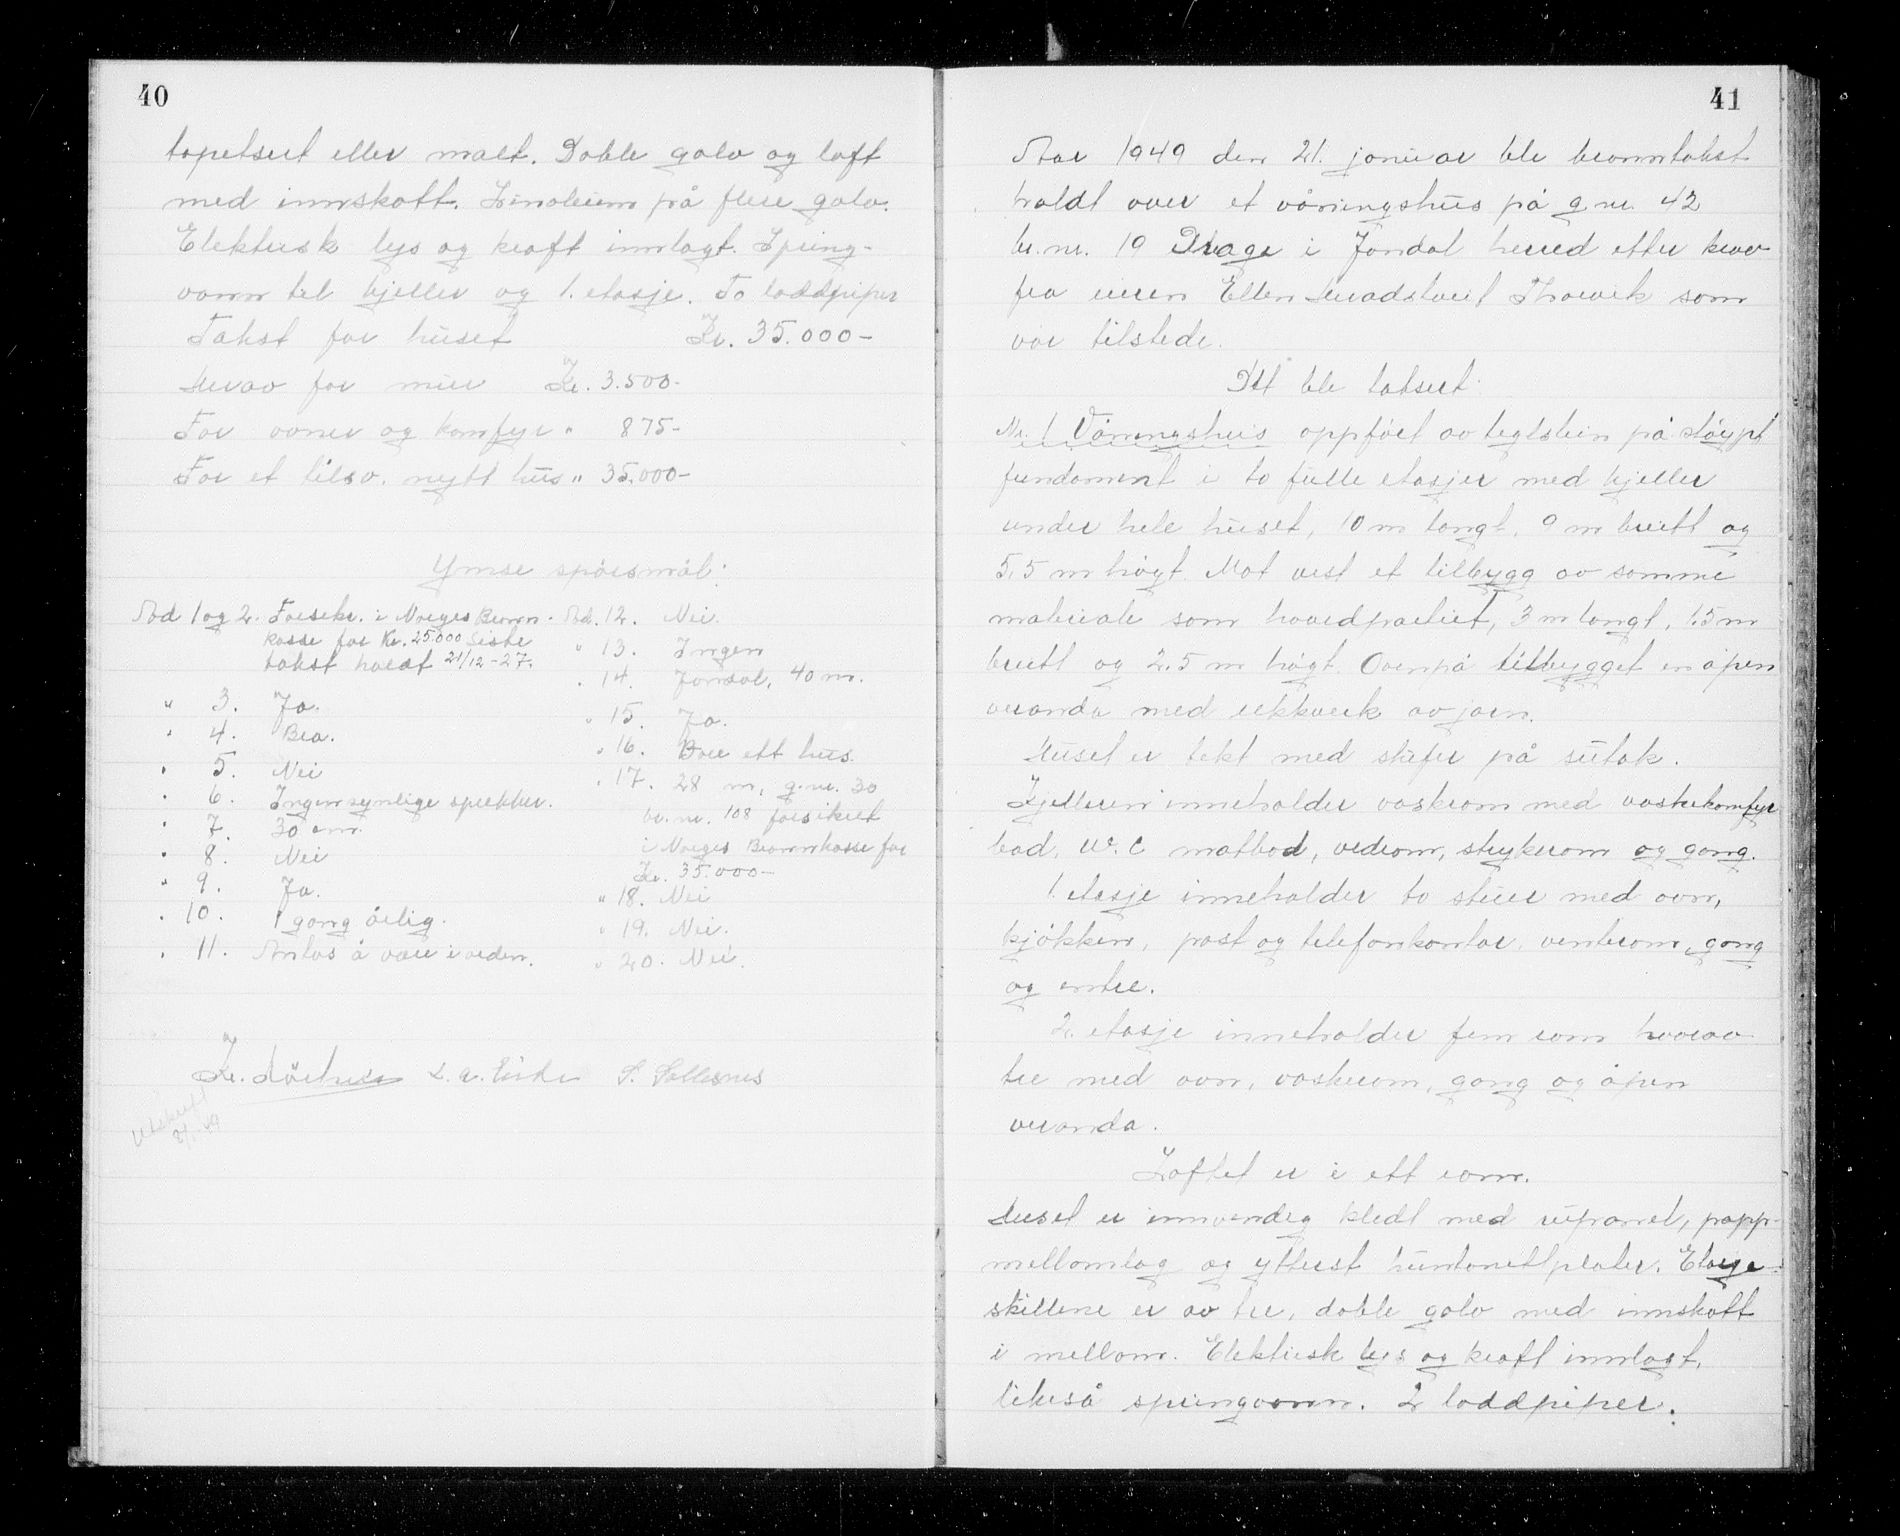 40
tapetsert eller malt. Doble golv og loft
med innskott. Linoleum på flere golv.
Elektrisk lys og kraft innlagt. Spring-
vann til kjeller og 1. etasje. To loddpiper
Takst for huset Kr. 35.000-
Herav for mur Kr. 3.500-
For ovner og komfyr " 875-
For et tilsv. nytt hus " 35.000-
Ymse spørsmål:
Ad 1 og 2. Forsikr. i Norges Brann-
kasse for Kr. 25.000 Siste
takst holdt 21/12-27.
" 3. Ja.
" 4. Bra.
" 5. Nei
" 6. Ingen synlige sprekker.
" 7. 30 cm.
" 8. Nei
" 9. Ja.
" 10. 1 gang årlig.
" 11. Antas å være i orden.
Ad. 12. Nei.
" 13. Ingen
" 14. Jondal, 40 m.
" 15. Ja.
" 16. Bare ett hus.
" 17. 28 m, g.nr. 30
br. nr. 108 forsikret
i Norges Brannkasse for
Kr. 35.000-
" 18. Nei
" 19. Nei.
" 20. Nei.
Kr. S. Sollesnes
Utskrift
41
Aar 1949 den 21. januar ble branntakst
haldt over et våningshus på g.nr. 42
br.nr. 10 i Jondal herred etter krav
fra eieren Ellen Thorvik som
var tilstede.
Det ble taksert:
Nr. 1 Våningshus oppført av teglstein på støypt
fundament i to fulle etasjer med kjeller
under hele huset, 10 m langt, 9 m breitt og
5,5 m høgt. Mot vest et tilbygg av samme
materiale som hovedpartiet, 3 m langt, 1.5 m
breitt og 2.5 m høgt. Ovenpå tilbygget en åpen
veranda med rekkverk av jarn.
Huset er tekt med skifer på sutak.
Kjelleren inneholder vaskrom med vaskekomfyr
bad, W.C matbod, vedrom, strykerom og gang.
1. etasje inneholder to stuer med ovn,
kjøkken, post og telefonkontor, venterom, gang
og entre.
2. etasje inneholder fem rom hvorav
tre med ovn, vaskerom, gang og åpen
veranda.
Loftet er i ett rom.
Huset er innvendig kledt med rupanel, papp-
mellomlag og ytterst huntonettplater. Etasje-
skillene er av tre, doble golv med innskott
i mellom. Elektrisk lys og kraft innlagt,
likeså springvann. 2 loddpiper.